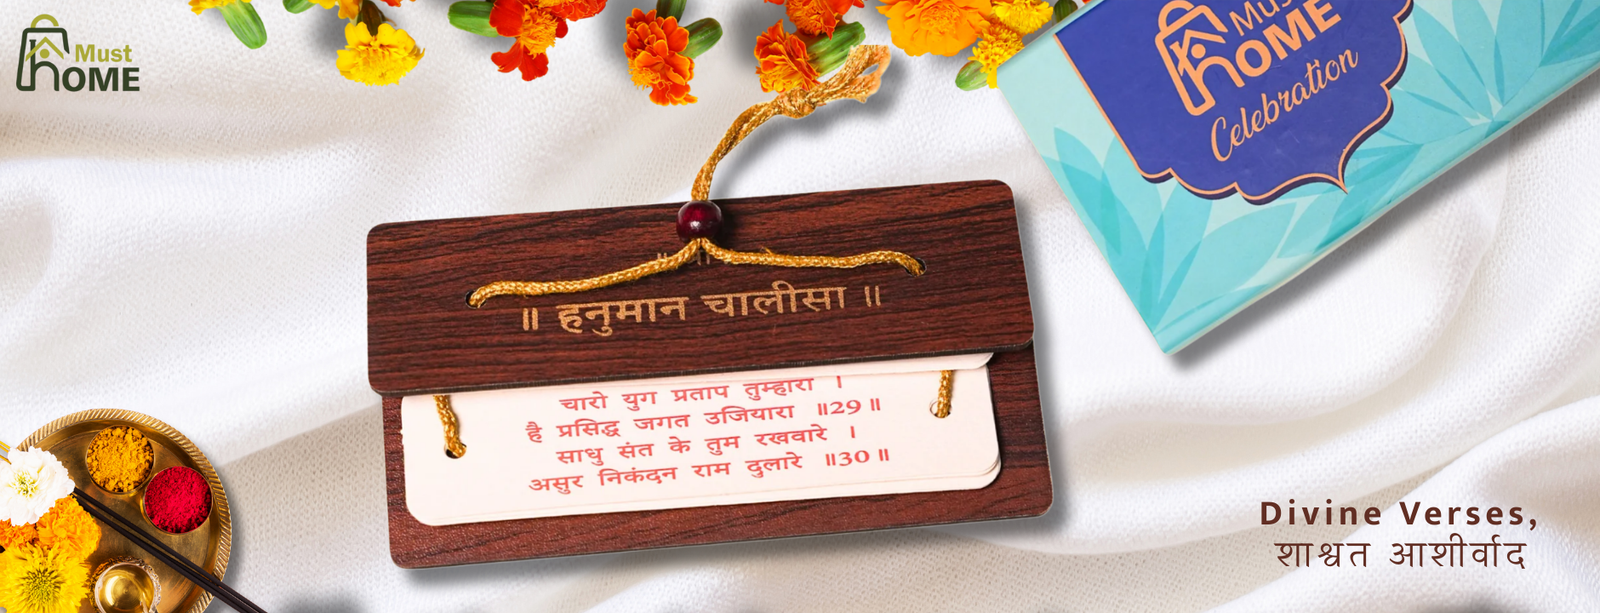 Must
HOME
Must
HOME
Celebration
॥ हनुमान चालीसा ॥
चारो युग प्रताप तुम्हारा ।
है प्रसिद्ध जगत उजियारा ॥29॥
साधु संत के तुम रखवारे ।
असुर निकंदन राम दुलारे ॥30॥
Divine Verses,
शाश्वत आशीर्वाद